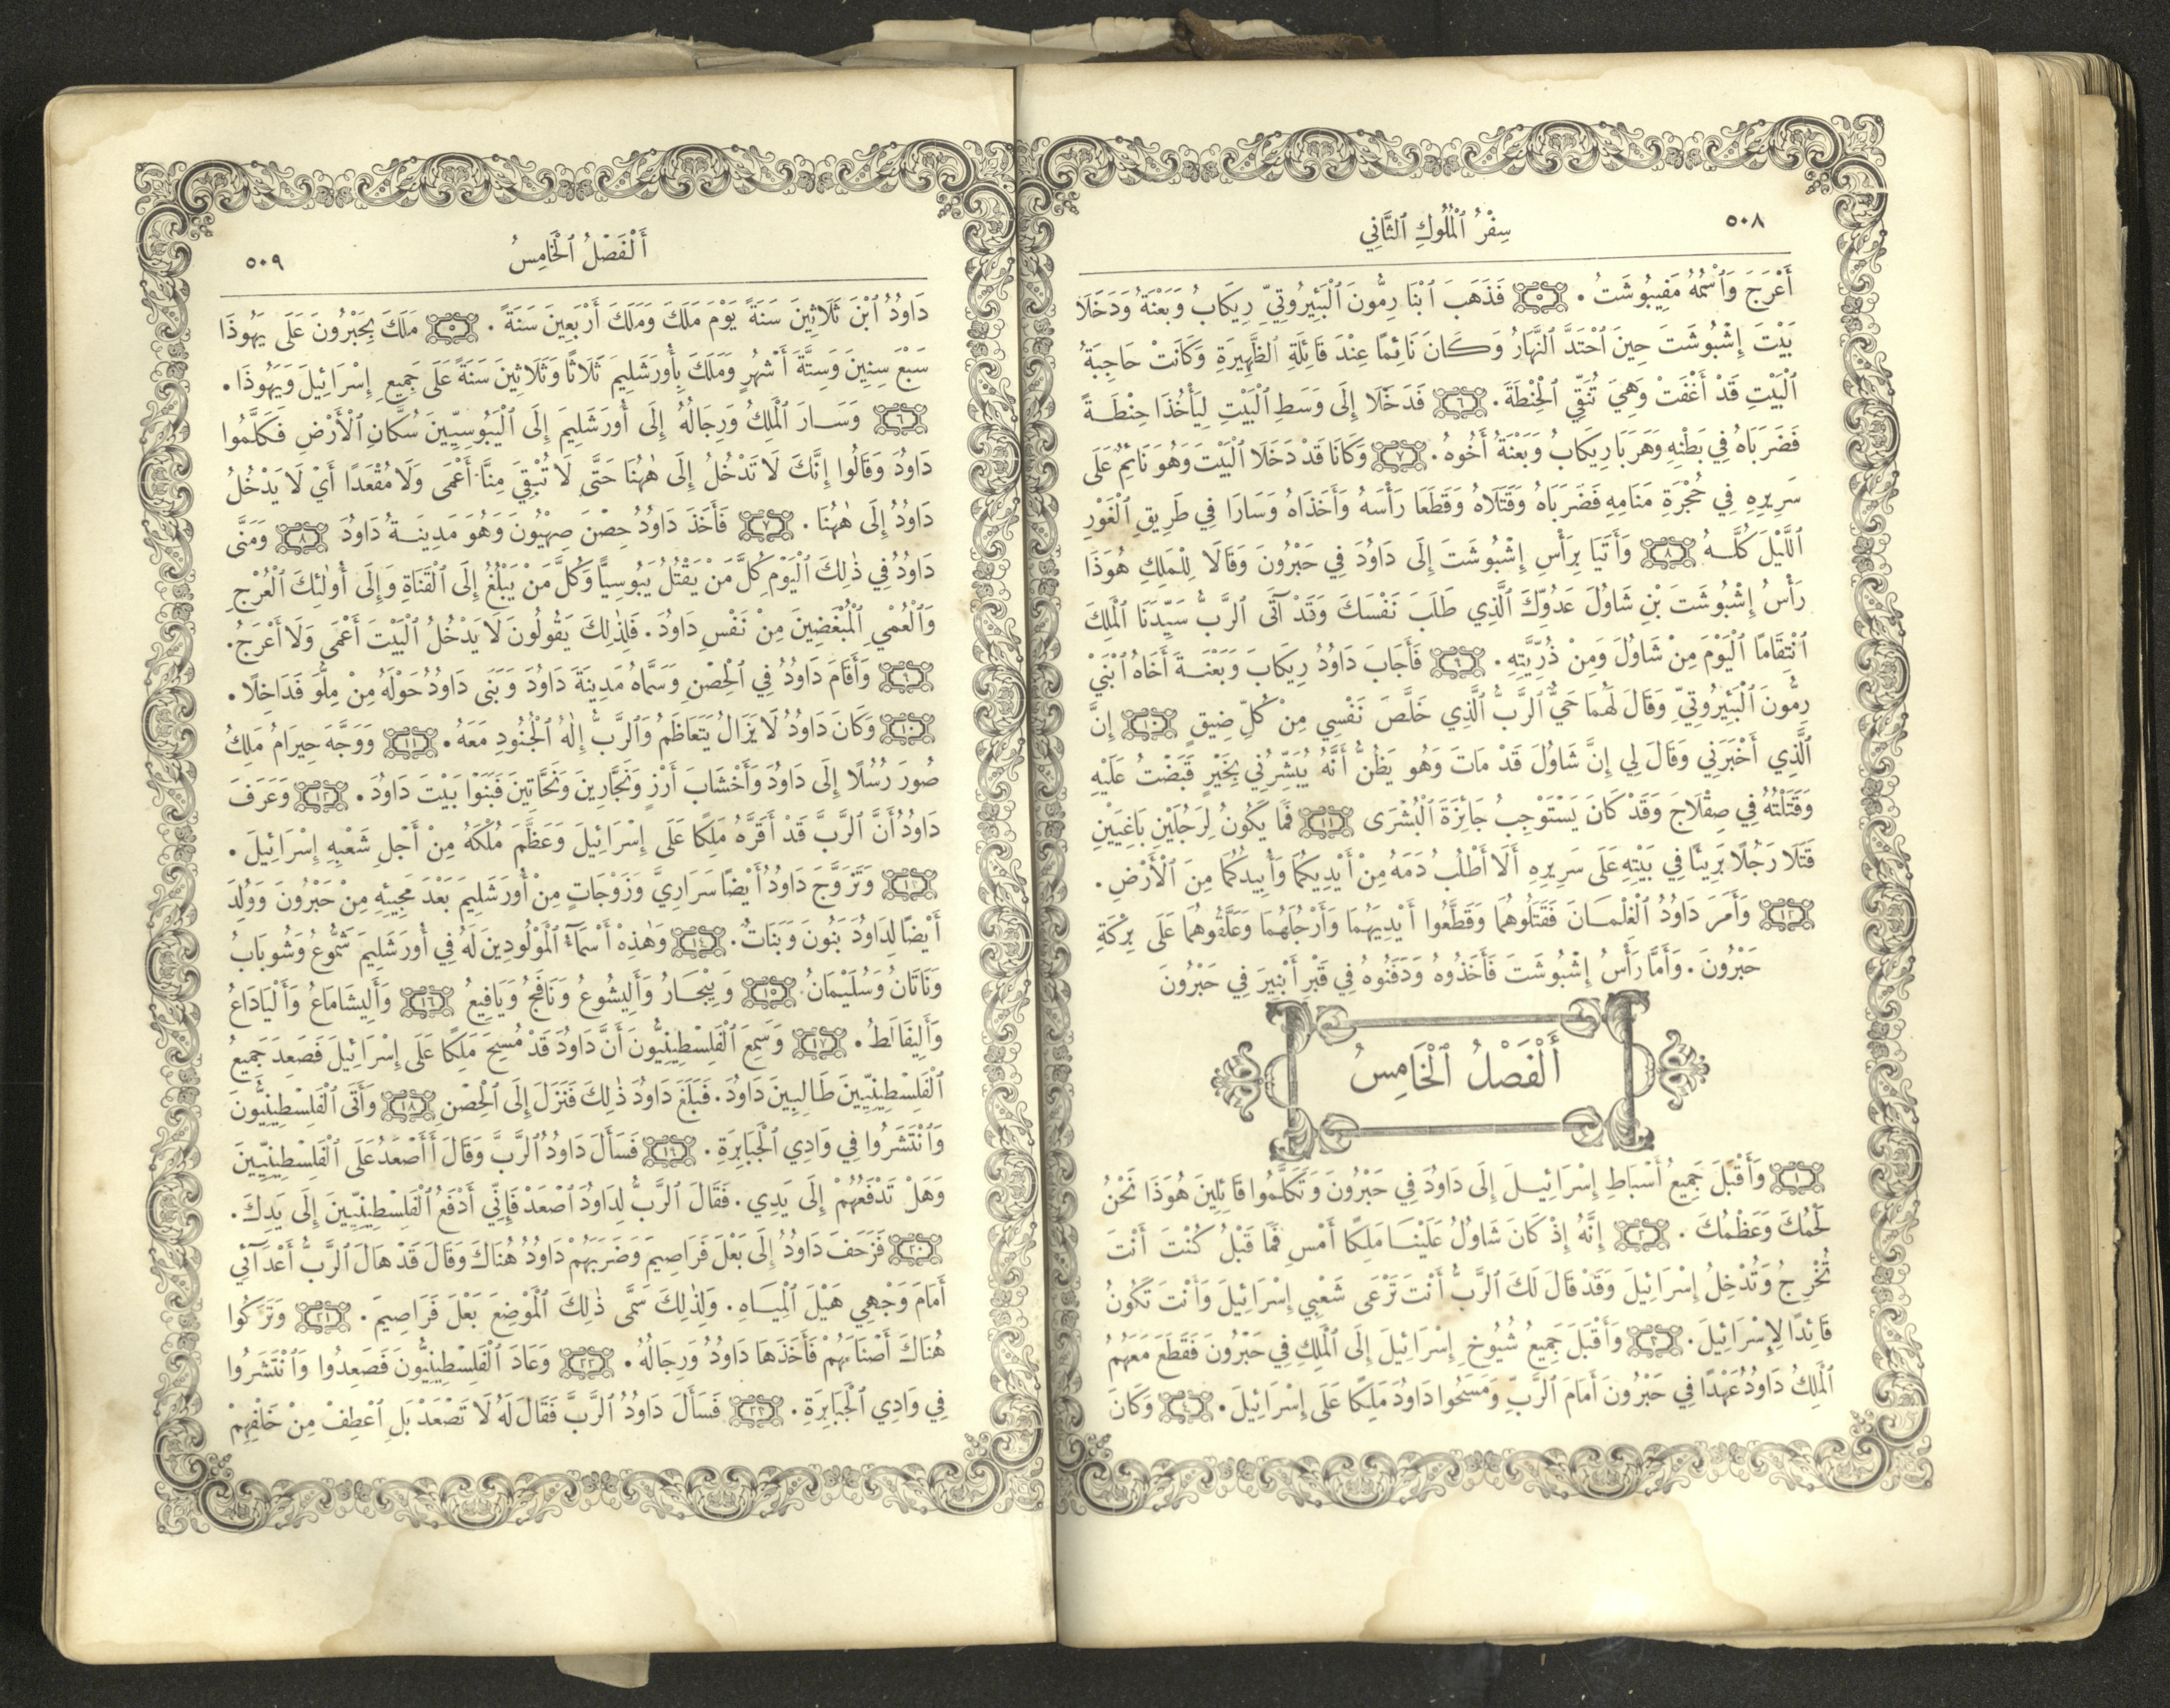 ٥٠٨
سِفْرُ ٱلْمُلُوكِ ٱلثَّانِي
أَعْرَجَ وَٱسْمُهُ مَفِيبُوشَتُ . ﴿٥﴾ فَذَهَبَ ٱبْنَا رِمُّونَ ٱلْبَئِيرُوتِيِّ رِيكَابُ وَبَعْنَةُ وَدَخَلَا
بَيْتَ إِشْبُوشَتَ حِينَ ٱحْتَدَّ ٱلنَّهَارُ وَكَانَ نَائِمًا عِنْدَ قَائِلَةِ ٱلظَّهِيرَةِ وَكَانَتْ حَاجِبَةُ
ٱلْبَيْتِ قَدْ أَغْفَتْ وَهِيَ تُنَقِّي ٱلْحِنْطَةَ . ﴿٦﴾ فَدَخَلَا إِلَى وَسَطِ ٱلْبَيْتِ لِيَأْخُذَا حِنْطَةً
فَضَرَبَاهُ فِي بَطْنِهِ وَهَرَبَا رِيكَابُ وَبَعْنَةُ أَخُوهُ . ﴿٧﴾ وَكَانَا قَدْ دَخَلَا ٱلْبَيْتَ وَهُوَ نَائِمٌ عَلَى
سَرِيرِهِ فِي حُجْرَةِ مَنَامِهِ فَضَرَبَاهُ وَقَتَلَاهُ وَقَطَعَا رَأْسَهُ وَأَخَذَاهُ وَسَارَا فِي طَرِيقِ ٱلْغَوْرِ
ٱللَّيْلَ كُلَّهُ ﴿٨﴾ وَأَتَيَا بِرَأْسِ إِشْبُوشَتَ إِلَى دَاوُدَ فِي حَبْرُونَ وَقَالَا لِلْمَلِكِ هُوَذَا
رَأْسُ إِشْبُوشَتَ بْنِ شَاوُلَ عَدُوِّكَ ٱلَّذِي طَلَبَ نَفْسَكَ وَقَدْ آتَى ٱلرَّبُّ سَيِّدَنَا ٱلْمَلِكَ
ٱنْتِقَامًا ٱلْيَوْمَ مِنْ شَاوُلَ وَمِنْ ذُرِّيَّتِهِ . ﴿٩﴾ فَأَجَابَ دَاوُدُ رِيكَابَ وَبَعْنَةَ أَخَاهُ ٱبْنَيْ
رِمُّونَ ٱلْبَئِيرُوتِيِّ وَقَالَ لَهُمَا حَيٌّ ٱلرَّبُّ ٱلَّذِي خَلَّصَ نَفْسِي مِنْ كُلِّ ضِيقٍ ﴿١٠﴾ إِنَّ
ٱلَّذِي أَخْبَرَنِي وَقَالَ لِي إِنَّ شَاوُلَ قَدْ مَاتَ وَهُو يَظُنُّ أَنَّهُ يُبَشِّرُنِي بِخَيْرٍ قَبَضْتُ عَلَيْهِ
وَقَتَلْتُهُ فِي صِقْلَاجَ وَقَدْ كَانَ يَسْتَوْجِبُ جَائِزَةَ ٱلْبُشْرَى ﴿١١﴾ فَمَا يَكُونُ لِرَجُلَيْنِ بَاغِيَيْنِ
قَتَلَا رَجُلًا بَرِيئًا فِي بَيْتِهِ عَلَى سَرِيرِهِ أَلَا أَطْلُبُ دَمَهُ مِنْ أَيْدِيكُمَا وَأُبِيدُكُمَا مِنَ ٱلْأَرْضِ .
﴿١٢﴾ وَأَمَرَ دَاوُدُ ٱلْغِلْمَانَ فَقَتَلُوهُمَا وَقَطَّعُوا أَيْدِيَهُمَا وَأَرْجُلَهُمَا وَعَلَّقُوهُمَا عَلَى بِرْكَةِ
حَبْرُونَ . وَأَمَّا رَأْسُ إِشْبُوشَتَ فَأَخَذُوهُ وَدَفَنُوهُ فِي قَبْرِ أَبْنِيرَ فِي حَبْرُونَ
أَلْفَصْلُ ٱلْخَامِسُ
﴿١﴾ وَأَقْبَلَ جَمِيعُ أَسْبَاطِ إِسْرَائِيلَ إِلَى دَاوُدَ فِي حَبْرُونَ وَتَكَلَّمُوا قَائِلِينَ هُوَذَا نَحْنُ
لَحْمُكَ وَعَظْمُكَ . ﴿٢﴾ إِنَّهُ إِذْ كَانَ شَاوُلُ عَلَيْنَا مَلِكًا أَمْسِ فَمَا قَبْلُ كُنْتَ أَنْتَ
تُخْرِجُ وَتُدْخِلُ إِسْرَائِيلَ وَقَدْ قَالَ لَكَ ٱلرَّبُّ أَنْتَ تَرْعَى شَعْبِي إِسْرَائِيلَ وَأَنْتَ تَكُونُ
قَائِدًا لِإِسْرَائِيلَ . ﴿٣﴾ وَأَقْبَلَ جَمِيعُ شُيُوخِ إِسْرَائِيلَ إِلَى ٱلْمَلِكِ فِي حَبْرُونَ فَقَطَعَ مَعَهُمُ
ٱلْمَلِكُ دَاوُدُ عَهْدًا فِي حَبْرُونَ أَمَامَ ٱلرَّبِّ وَمَسَحُوا دَاوُدَ مَلِكًا عَلَى إِسْرَائِيلَ . ﴿٤﴾ وَكَانَ
أَلْفَصْلُ ٱلْخَامِسُ
٥٠٩
دَاوُدُ ٱبْنَ ثَلَاثِينَ سَنَةً يَوْمَ مَلَكَ وَمَلَكَ أَرْبَعِينَ سَنَةً . ﴿٥﴾ مَلَكَ بِحَبْرُونَ عَلَى يَهُوذَا
سَبْعَ سِنِينَ وَسِتَّةَ أَشْهُرٍ وَمَلَكَ بِأُورَشَلِيمَ ثَلَاثًا وَثَلَاثِينَ سَنَةً عَلَى جَمِيعِ إِسْرَائِيلَ وَيَهُوذَا .
﴿٦﴾ وَسَارَ ٱلْمَلِكُ وَرِجَالُهُ إِلَى أُورَشَلِيمَ إِلَى ٱلْيَبُوسِيِّينَ سُكَّانِ ٱلْأَرْضِ فَكَلَّمُوا
دَاوُدَ وَقَالُوا إِنَّكَ لَا تَدْخُلُ إِلَى هٰهُنَا حَتَّى لَا تُبْقِيَ مِنَّا أَعْمَى وَلَا مُقْعَدًا أَيْ لَا يَدْخُلُ
دَاوُدُ إِلَى هٰهُنَا . ﴿٧﴾ فَأَخَذَ دَاوُدُ حِصْنَ صِهْيُونَ وَهُوَ مَدِينَةُ دَاوُدَ ﴿٨﴾ وَمَنَّى
دَاوُدُ فِي ذٰلِكَ ٱلْيَوْمِ كُلَّ مَنْ يَقْتُلُ يَبُوسِيًّا وَكُلَّ مَنْ يَبْلُغُ إِلَى ٱلْقَنَاةِ وَإِلَى أُولٰئِكَ ٱلْعُرْجِ
وَٱلْعُمْيِ ٱلْمُبْغَضِينَ مِنْ نَفْسِ دَاوُدَ . فَلِذٰلِكَ يَقُولُونَ لَا يَدْخُلُ ٱلْبَيْتَ أَعْمَى وَلَا أَعْرَجُ .
﴿٩﴾ وَأَقَامَ دَاوُدُ فِي ٱلْحِصْنِ وَسَمَّاهُ مَدِينَةَ دَاوُدَ وَبَنَى دَاوُدُ حَوْلَهُ مِنْ مِلُّوَ فَدَاخِلًا .
﴿١٠﴾ وَكَانَ دَاوُدُ لَا يَزَالُ يَتَعَاظَمُ وَٱلرَّبُّ إِلٰهُ ٱلْجُنُودِ مَعَهُ . ﴿١١﴾ وَوَجَّهَ حِيرَامُ مَلِكُ
صُورَ رُسُلًا إِلَى دَاوُدَ وَأَخْشَابَ أَرْزٍ وَنَجَّارِينَ وَنَحَّاتِينَ فَبَنَوْا بَيْتَ دَاوُدَ . ﴿١٢﴾ وَعَرَفَ
دَاوُدُ أَنَّ ٱلرَّبَّ قَدْ أَقَرَّهُ مَلِكًا عَلَى إِسْرَائِيلَ وَعَظَّمَ مُلْكَهُ مِنْ أَجْلِ شَعْبِهِ إِسْرَائِيلَ .
﴿١٣﴾ وَتَزَوَّجَ دَاوُدُ أَيْضًا سَرَارِيَّ وَزَوْجَاتٍ مِنْ أُورَشَلِيمَ بَعْدَ مَجِيئِهِ مِنْ حَبْرُونَ وَوُلِدَ
أَيْضًا لِدَاوُدَ بَنُونَ وَبَنَاتٌ . ﴿١٤﴾ وَهٰذِهْ أَسْمَآءُ ٱلْمَوْلُودِينَ لَهُ فِي أُورَشَلِيمَ شَمُّوعُ وَشُوبَابُ
وَنَاتَانُ وَسُلَيْمَانُ ﴿١٥﴾ وَيِبْحَارُ وَأَلِيشُوعُ وَنَافَجُ وَيَافِيعُ ﴿١٦﴾ وَأَلِيشَامَاعُ وَأَلْيَادَاعُ
وَأَلِيفَالَطُ . ﴿١٧﴾ وَسَمِعَ ٱلْفَلِسْطِينِيُّونَ أَنَّ دَاوُدَ قَدْ مُسِحَ مَلِكًا عَلَى إِسْرَائِيلَ فَصَعِدَ جَمِيعُ
ٱلْفَلِسْطِينِيِّينَ طَالِبِينَ دَاوُدَ . فَبَلَغَ دَاوُدَ ذٰلِكَ فَنَزَلَ إِلَى ٱلْحِصْنِ ﴿١٨﴾ وَأَتَى ٱلْفَلِسْطِينِيُّونَ
وَٱنْتَشَرُوا فِي وَادِي ٱلْجَبَابِرَةِ . ﴿١٩﴾ فَسَأَلَ دَاوُدُ ٱلرَّبَّ وَقَالَ أَأَصْعَدُ عَلَى ٱلْفَلِسْطِينِيِّينَ
وَهَلْ تَدْفَعُهُمْ إِلَى يَدِي . فَقَالَ ٱلرَّبُّ لِدَاوُدَ ٱصْعَدْ فَإِنِّي أَدْفَعُ ٱلْفَلِسْطِينِيِّينَ إِلَى يَدِكَ .
﴿٢٠﴾ فَزَحَفَ دَاوُدُ إِلَى بَعْلَ فَرَاصِيمَ وَضَرَبَهُمْ دَاوُدُ هُنَاكَ وَقَالَ قَدْ هَالَ ٱلرَّبُّ أَعْدَآئِي
أَمَامَ وَجْهِي هَيْلَ ٱلْمِيَاهِ . وَلِذٰلِكَ سَمَّى ذٰلِكَ ٱلْمَوْضِعَ بَعْلَ فَرَاصِيمَ . ﴿٢١﴾ وَتَرَكُوا
هُنَاكَ أَصْنَامَهُمْ فَأَخَذَهَا دَاوُدُ وَرِجَالُهُ . ﴿٢٢﴾ وَعَادَ ٱلْفَلِسْطِينِيُّونَ فَصَعِدُوا وَٱنْتَشَرُوا
فِي وَادِي ٱلْجَبَابِرَةِ . ﴿٢٣﴾ فَسَأَلَ دَاوُدُ ٱلرَّبَّ فَقَالَ لَهُ لَا تَصْعَدْ بَلِ ٱعْطِفْ مِنْ خَلْفِهِمْ